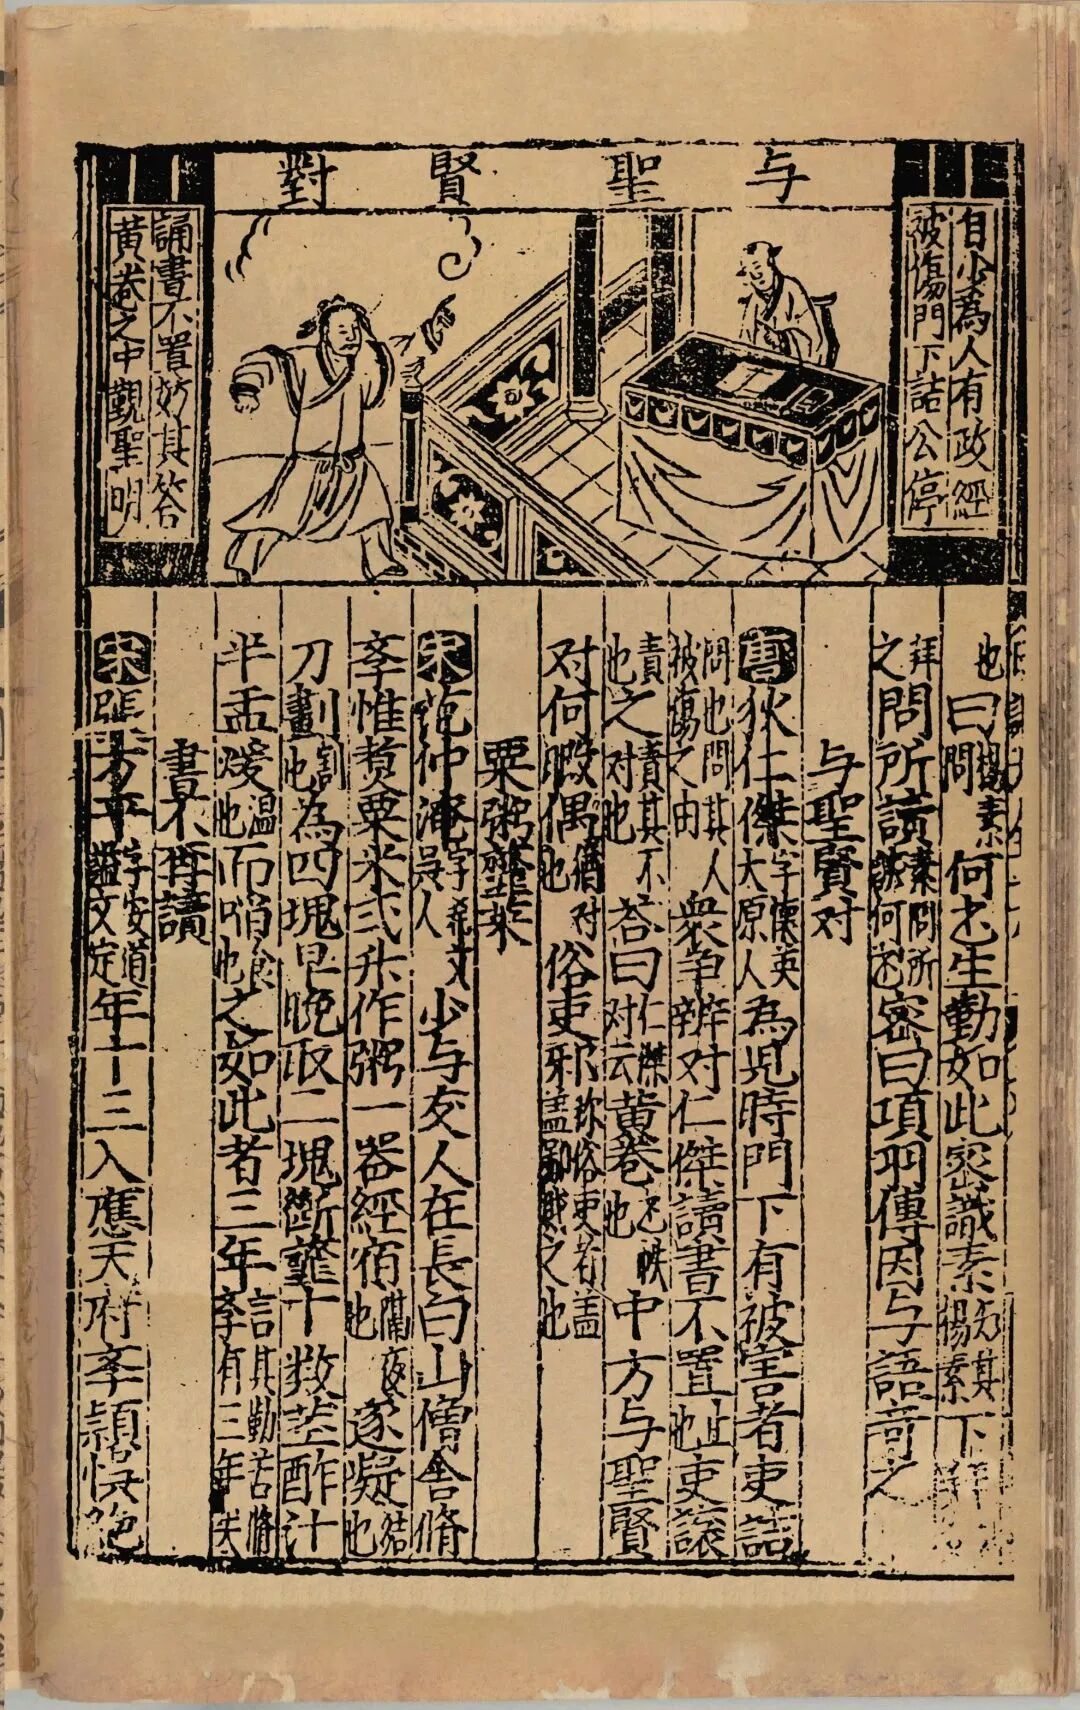 与聖賢對
自少為人有政經
被傷門下詰公停
誦書不置妨其答
黃卷之中觀聖明
也曰問楊素何処生勤如此密識素乃其楊素下
拜之問所讀素問所讀何書密曰項羽傳因与語奇之
与聖賢对
狄仁傑字懷英大原人為児時門下有被害者吏詰
問也問其人被傷之由衆争辨对仁傑讀書不置止也吏讓
責也之責其不对也荅曰仁傑对云黄卷書帙也中方与聖賢
对何暇偶猶对也俗吏邪
粟粥虀菜
宋范仲淹字希文吳人少与友人在長白山僧舍脩
孝惟煑粟米弍升作粥一器經宿隔夜也遂凝結也
刀劃割也為四塊早晚取二塊断虀十数莖酢汁
半盂煖温也而啗食也之如此者三年言其勤苦脩孝有三年矣
書不再讀
宋張方平字安道謚文定年十三入應天府孝穎悟絶